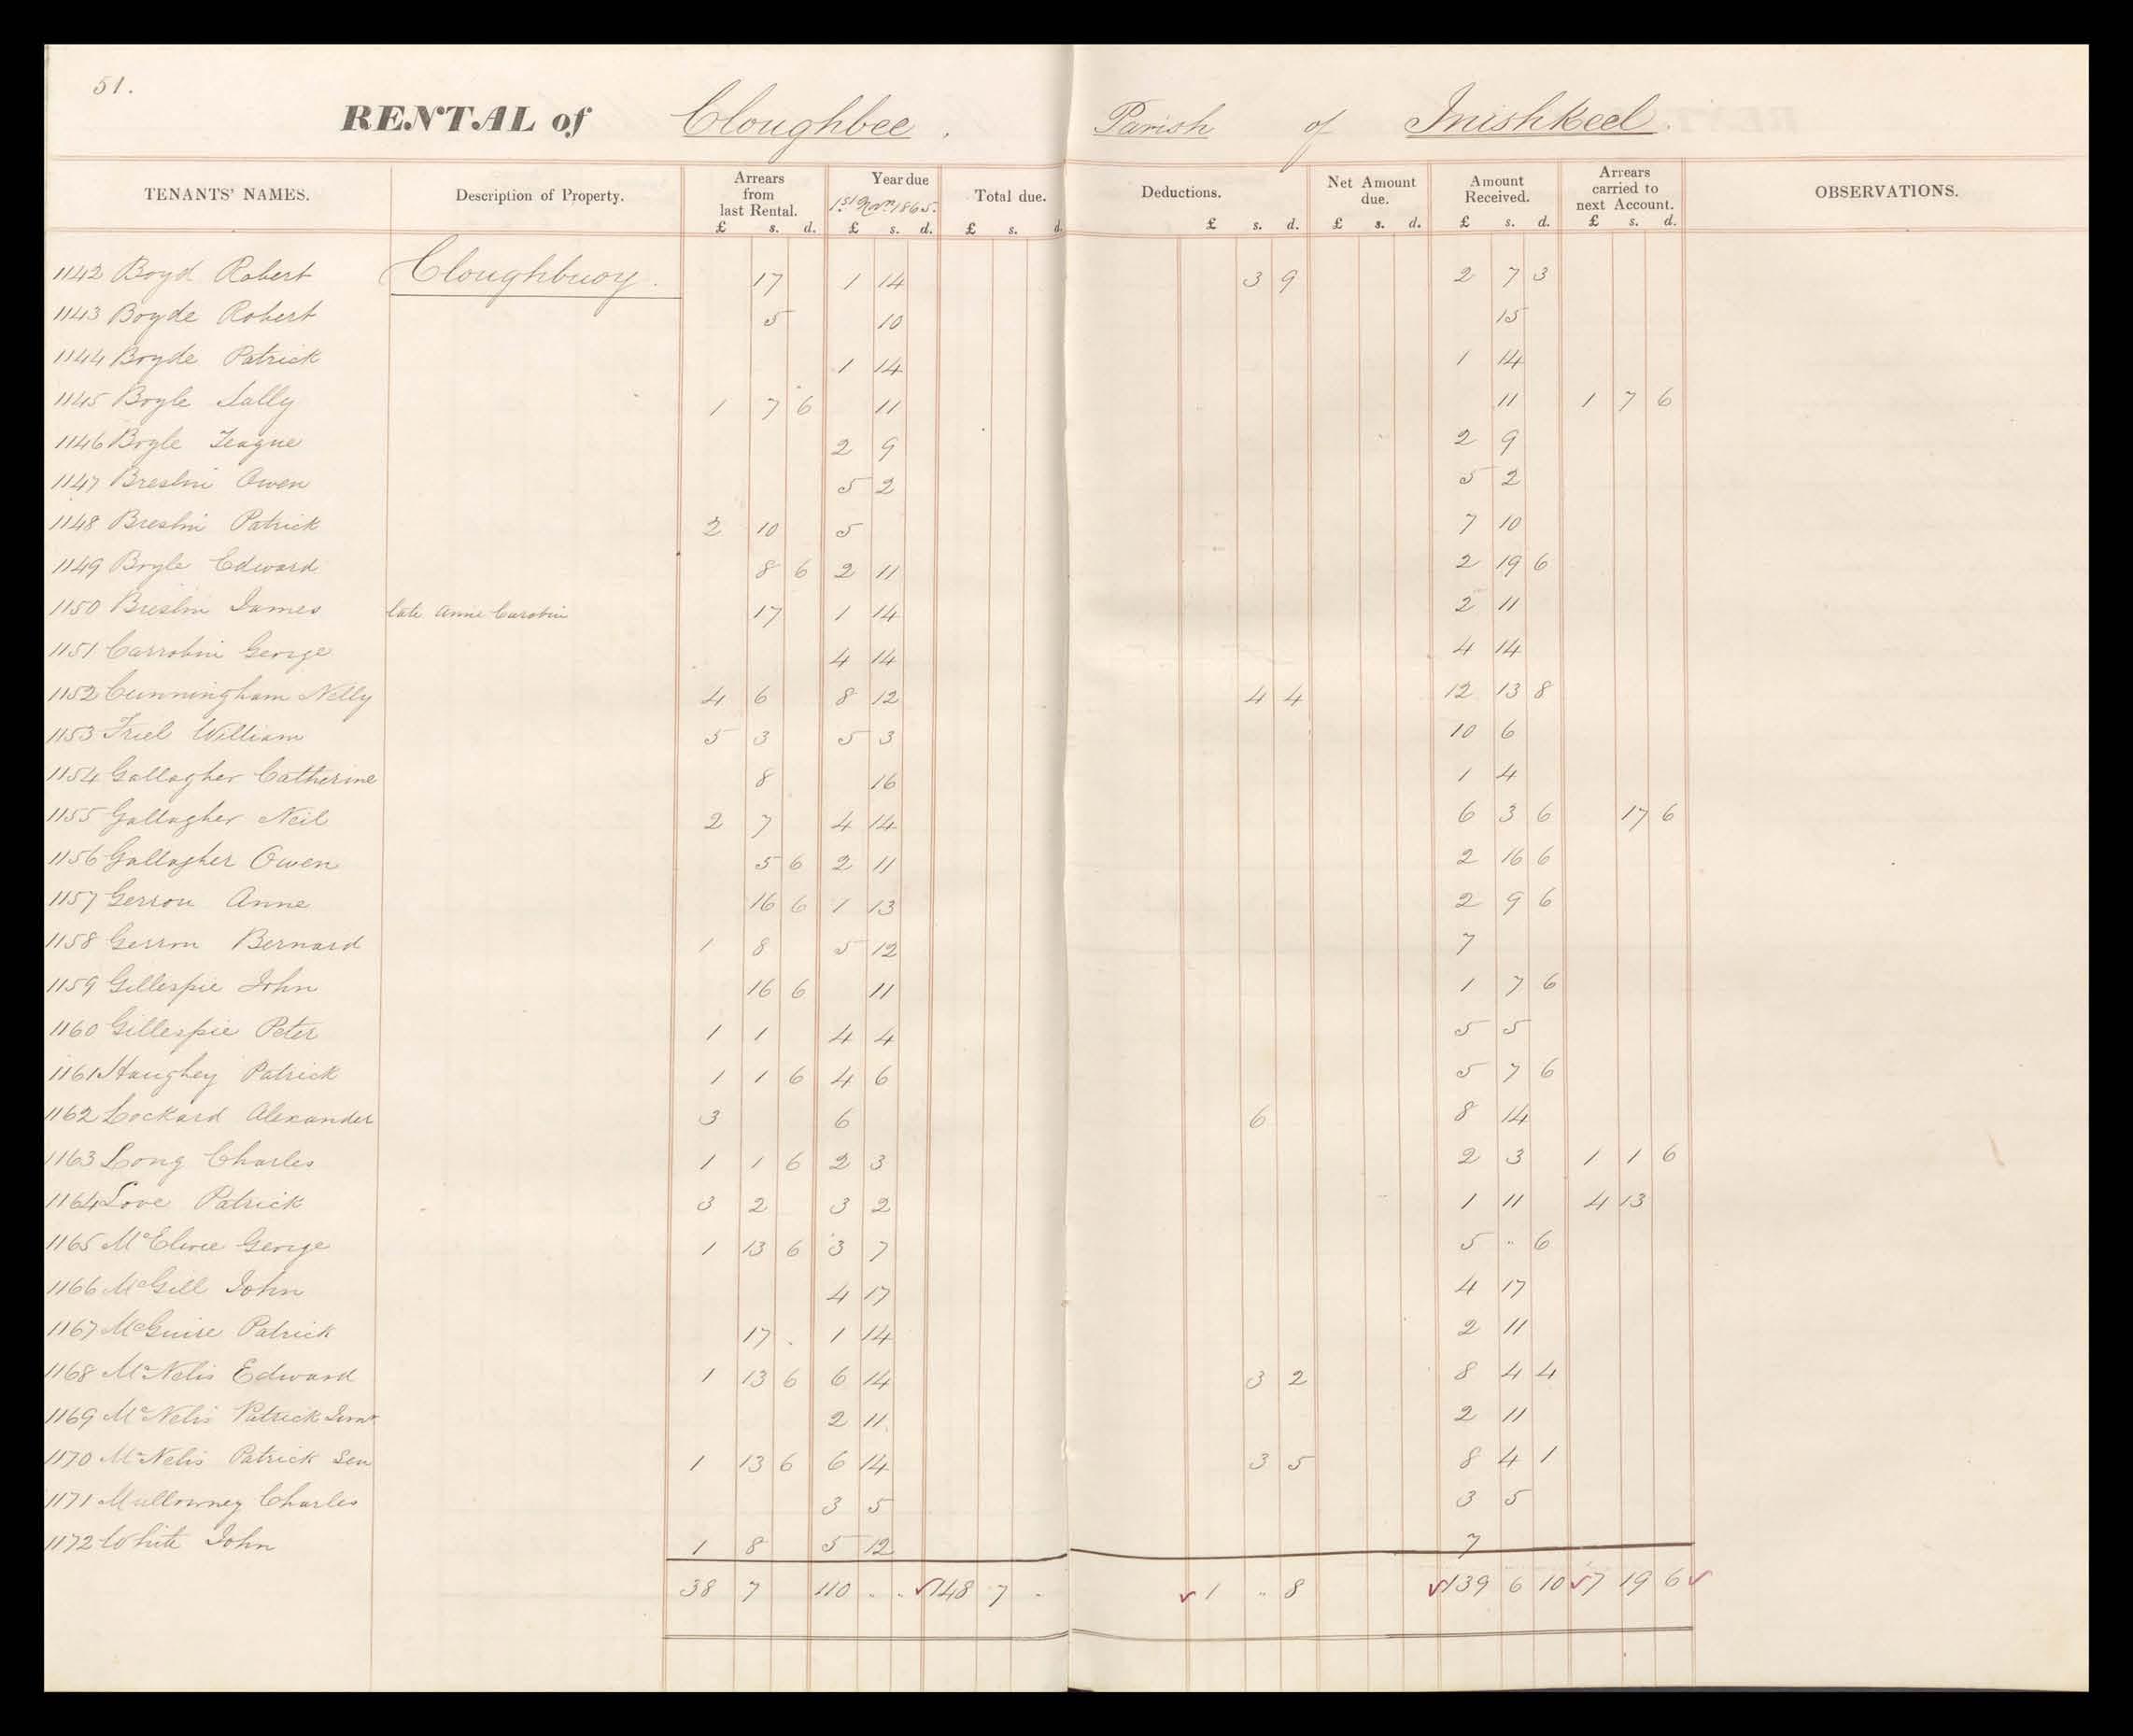 51.
RENTAL of Cloughbee. Parish of Inishkeel.
TENANTS' NAMES. Description of Property. Arrears from last Rental. Year due 1st Novr. 1865. Total due. Deductions. Net Amount due. Amount Received. Arrears carried to next Account. OBSERVATIONS.
£ s. d. £ s. d. £ s. d. £ s. d. £ s. d. £ s. d. £ s. d.
1142 Boyd Robert Cloughbuoy. 17 1 14 3 9 2 7 3
1143 Boyde Robert 5 10 15
1144 Boyde Patrick 1 14 1 14
1145 Boyle Sally 1 7 6 11 11 1 7 6
1146 Boyle Teague 2 9 2 9
1147 Breslin Owen 5 2 5 2
1148 Breslin Patrick 2 10 5 7 10
1149 Boyle Edward 8 6 2 11 2 19 6
1150 Breslin James late Anne Carobin 17 1 14 2 11
1151 Carrobin George 4 14 4 14
1152 Cunningham Nelly 4 6 8 12 4 4 12 13 8
1153 Friel William 5 3 5 3 10 6
1154 Gallagher Catherine 8 16 1 4
1155 Gallagher Neil 2 7 4 14 6 3 6 17 6
1156 Gallagher Owen 5 6 2 11 2 16 6
1157 Gerron Anne 16 6 1 13 2 9 6
1158 Gerron Bernard 1 8 5 12 7
1159 Gillespie John 16 6 11 1 7 6
1160 Gillespie Peter 1 1 4 4 5 5
1161 Haughey Patrick 1 1 6 4 6 5 7 6
1162 Lockard Alexander 3 6 6 8 14
1163 Long Charles 1 1 6 2 3 2 3 1 1 6
1164 Love Patrick 3 2 3 2 1 11 4 13
1165 McElwee George 1 13 6 3 7 5 " 6
1166 McGill John 4 17 4 17
1167 McGuire Patrick 17 . 1 14 2 11
1168 McNelis Edward 1 13 6 6 14 3 2 8 4 4
1169 McNelis Patrick Junr 2 11 2 11
1170 McNelis Patrick Sen 1 13 6 6 14 3 5 8 4 1
1171 Mullowney Charles 3 5 3 5
1172 White John 1 8 5 12 7
38 7 110 " " ✓148 7 " ✓1 " 8 ✓139 6 10 ✓7 19 6 ✓